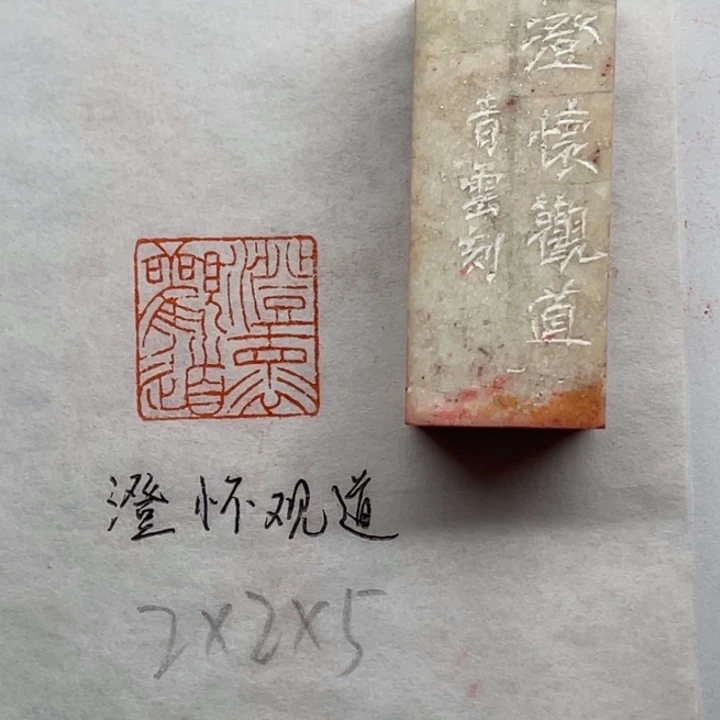 澄懷觀道
青雲刻
澄懷觀道
澄怀观道
2×2×5